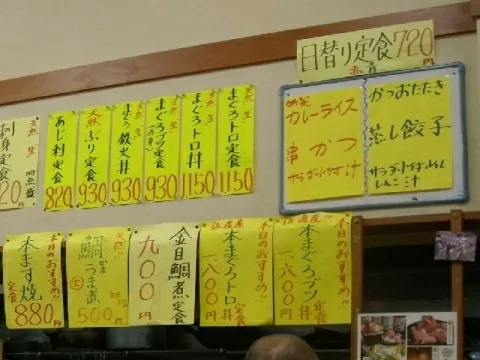 日替り定食720円
特製
カレーライス
串かつ
サラダ・小付・汁
かつおたたき
蒸し餃子
サラダ・小付・めし
しんこ・汁
天然 生
まぐろトロ定食
1150
天然 生
まぐろトロ丼
1150
天然 生
まぐろブツ定食
930
まぐろ鉄火丼
930
天然
ぶり定食
930
あじ刺定食
820
天然 生
刺身定食
四点盛
本日のおすすめ!!
本まぐろブツ丼
定食
一、六〇〇円
佐渡産
本日のおすすめ!!
本まぐろトロ丼
定食
一、八〇〇円
金目鯛煮定食
九〇〇円
天然!!
うま煮
500円
本日のおすすめ!!
本ます焼
定食
880円